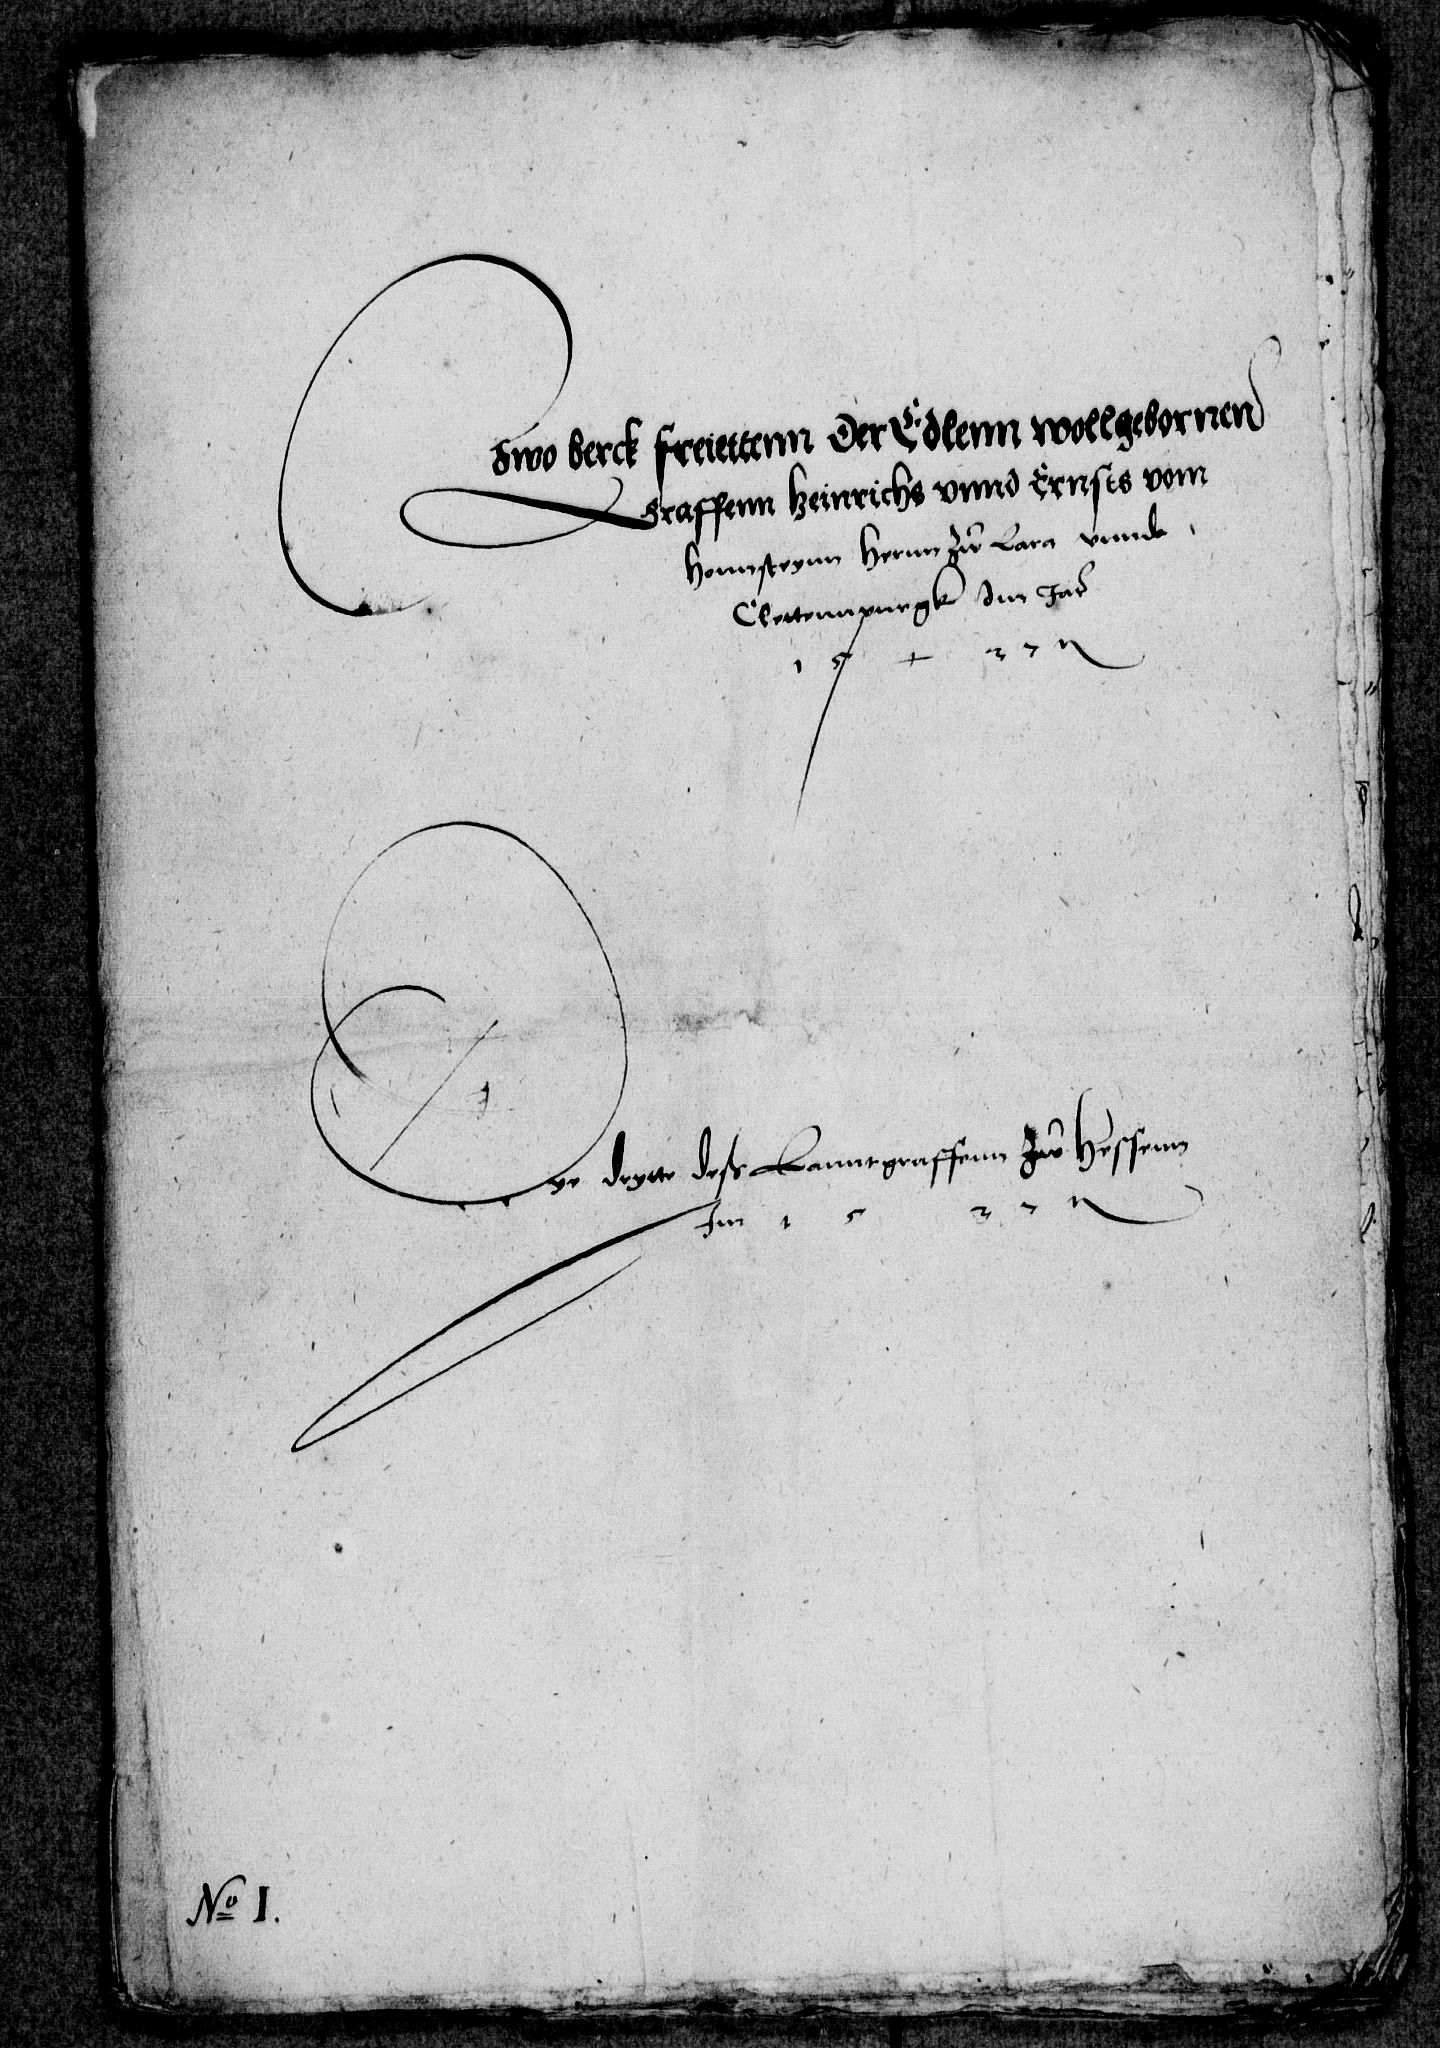 Zwo berck freiettenn der Edlenn wollgebornen
graffenn heinrichs vnnd Ernsts vom
honnsteynn Hernn zw Lara vnnde
Clettennpurgk Inn Jar
1 5 + 3 7
Dye drytte deß Lanntgraffenn zw Hessenn
Im 1 5 3 7
No I.